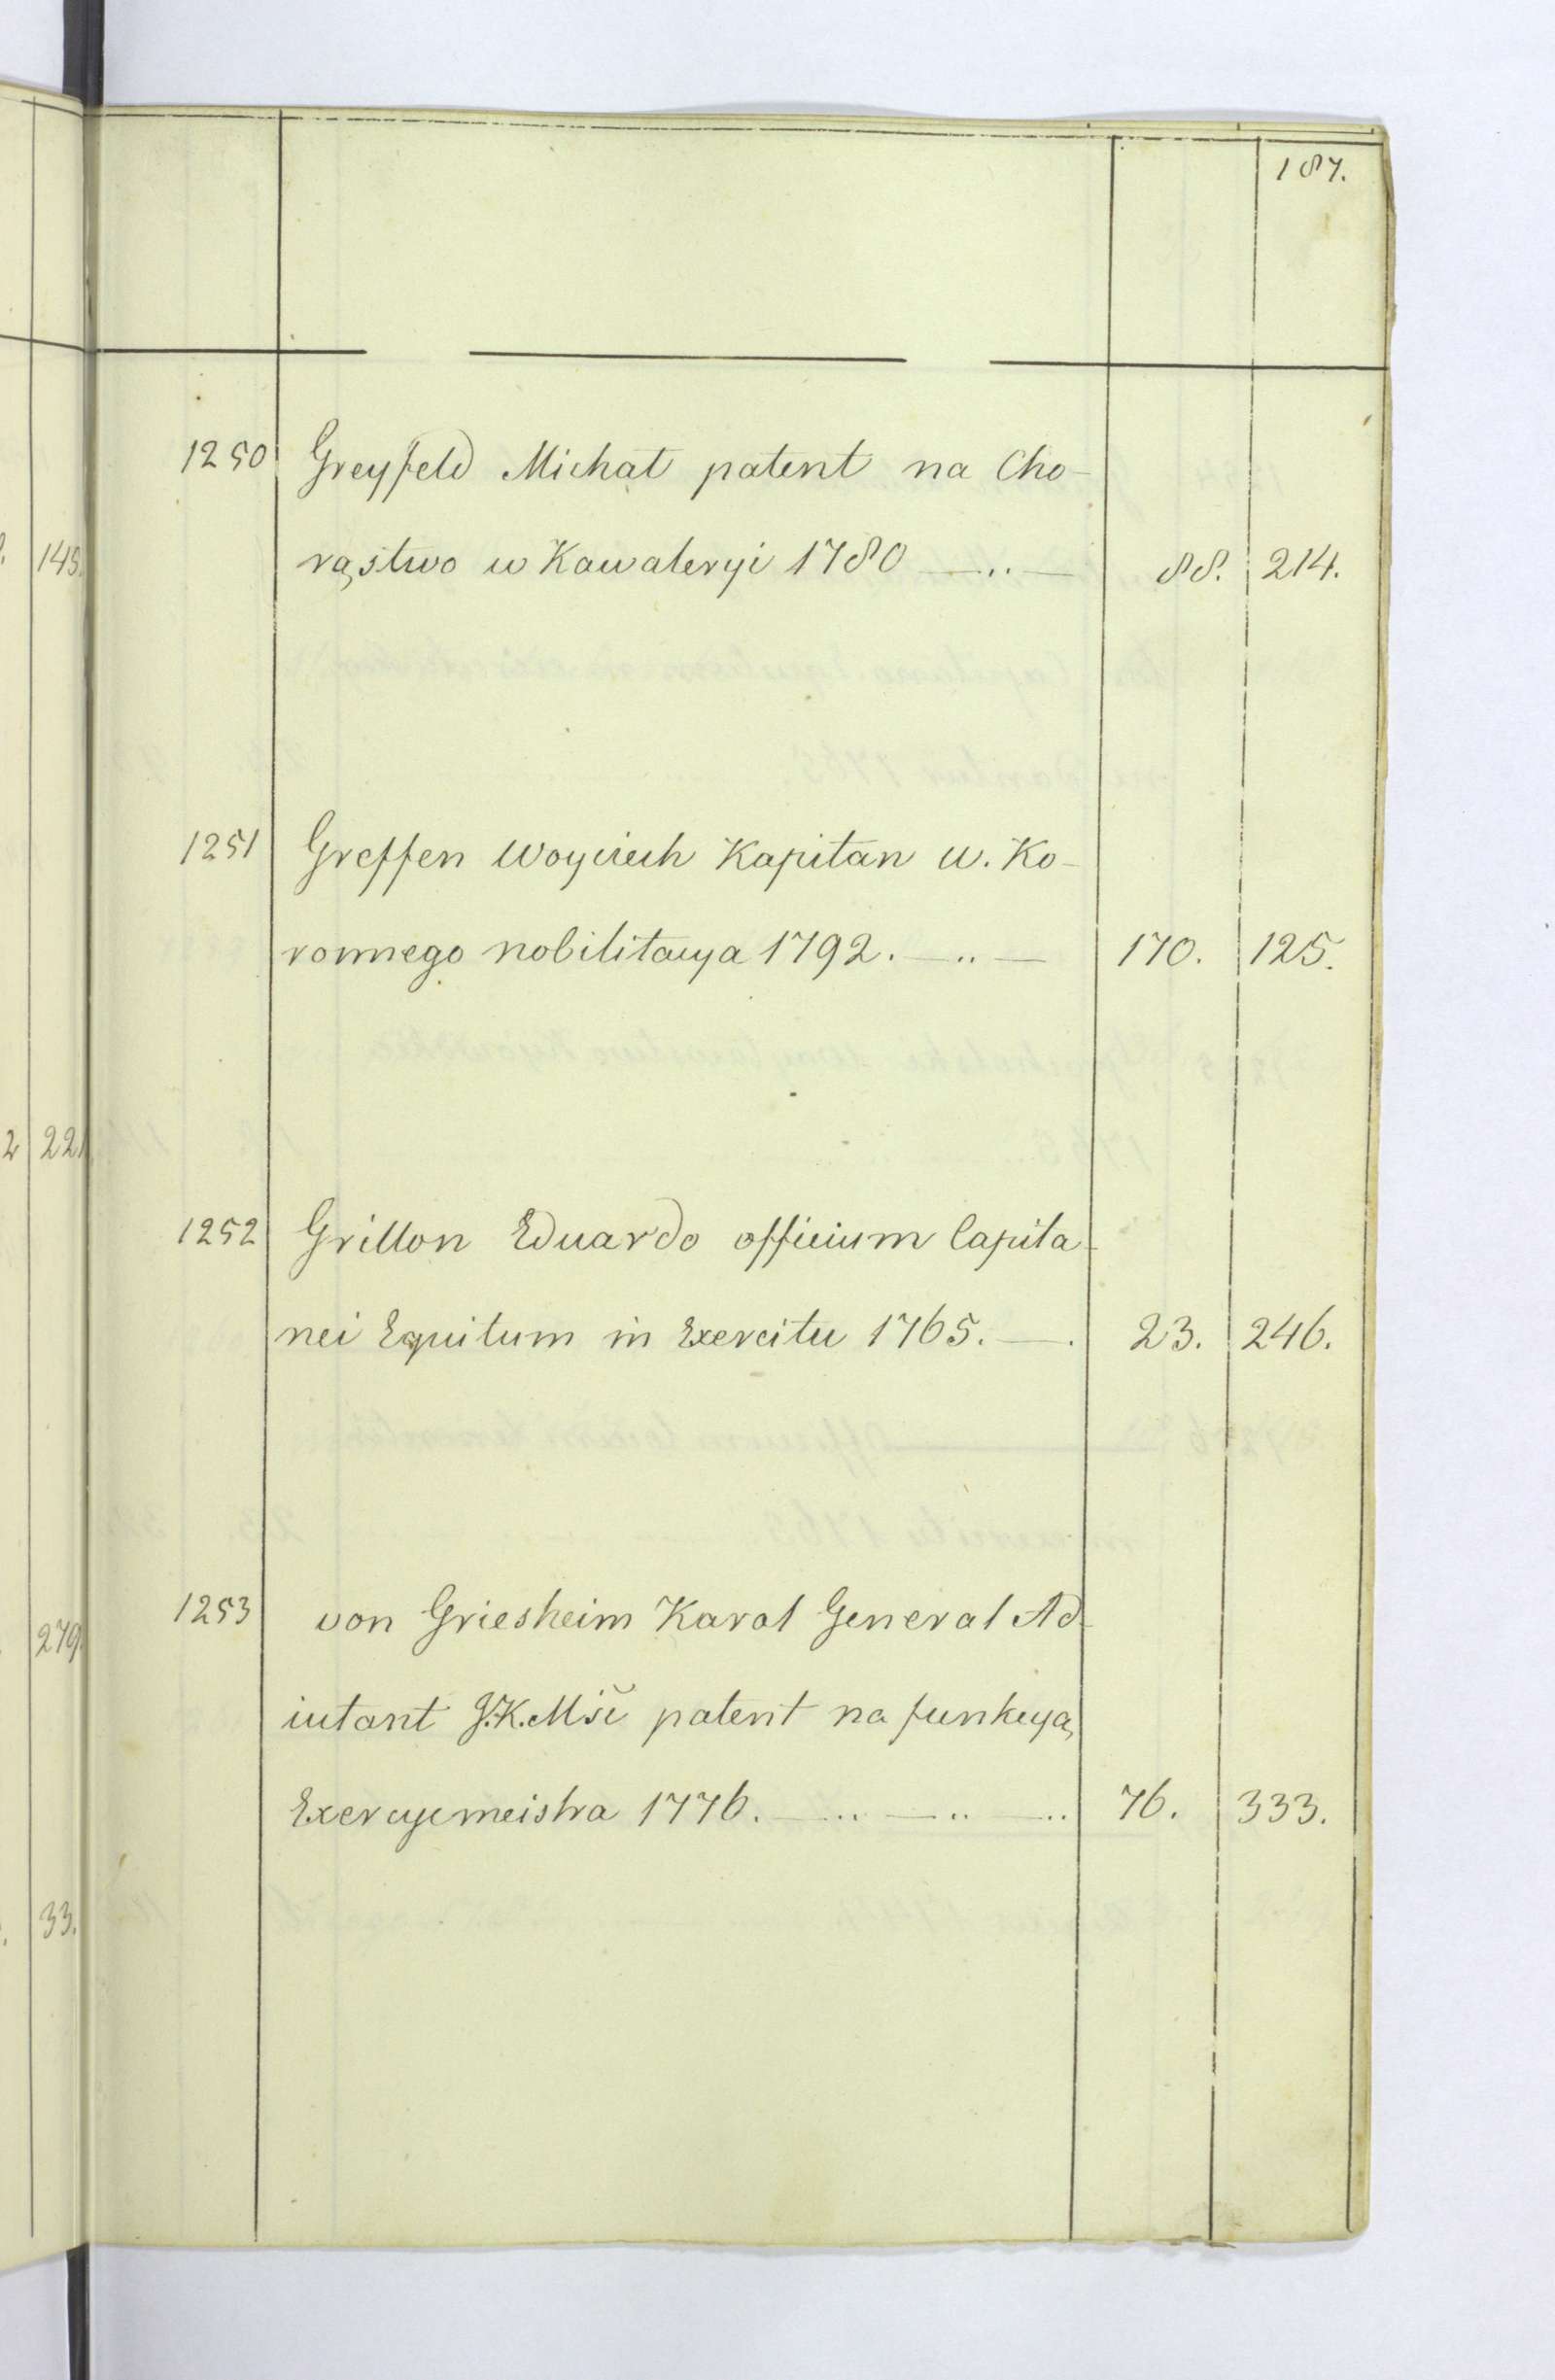 187.
1250 Greyfeld Michał patent na Cho-
rąstwo w Kawaleryi 1780 —..— 88. 214.
1251 Greffen Woyciech Kapitan w. Ko-
ronnego nobilitacya 1792. —..— 170. 125.
1252 Grillon Eduardo officium Capita-
nei Equitum in Exercitu 1765. —. 23. 246.
1253 von Griesheim Karol General Ad-
iutant J.K.Mści patent na funkcyą
Exercycmeistra 1776. —..—..—.. 76. 333.
145.
2 221
279.
33.